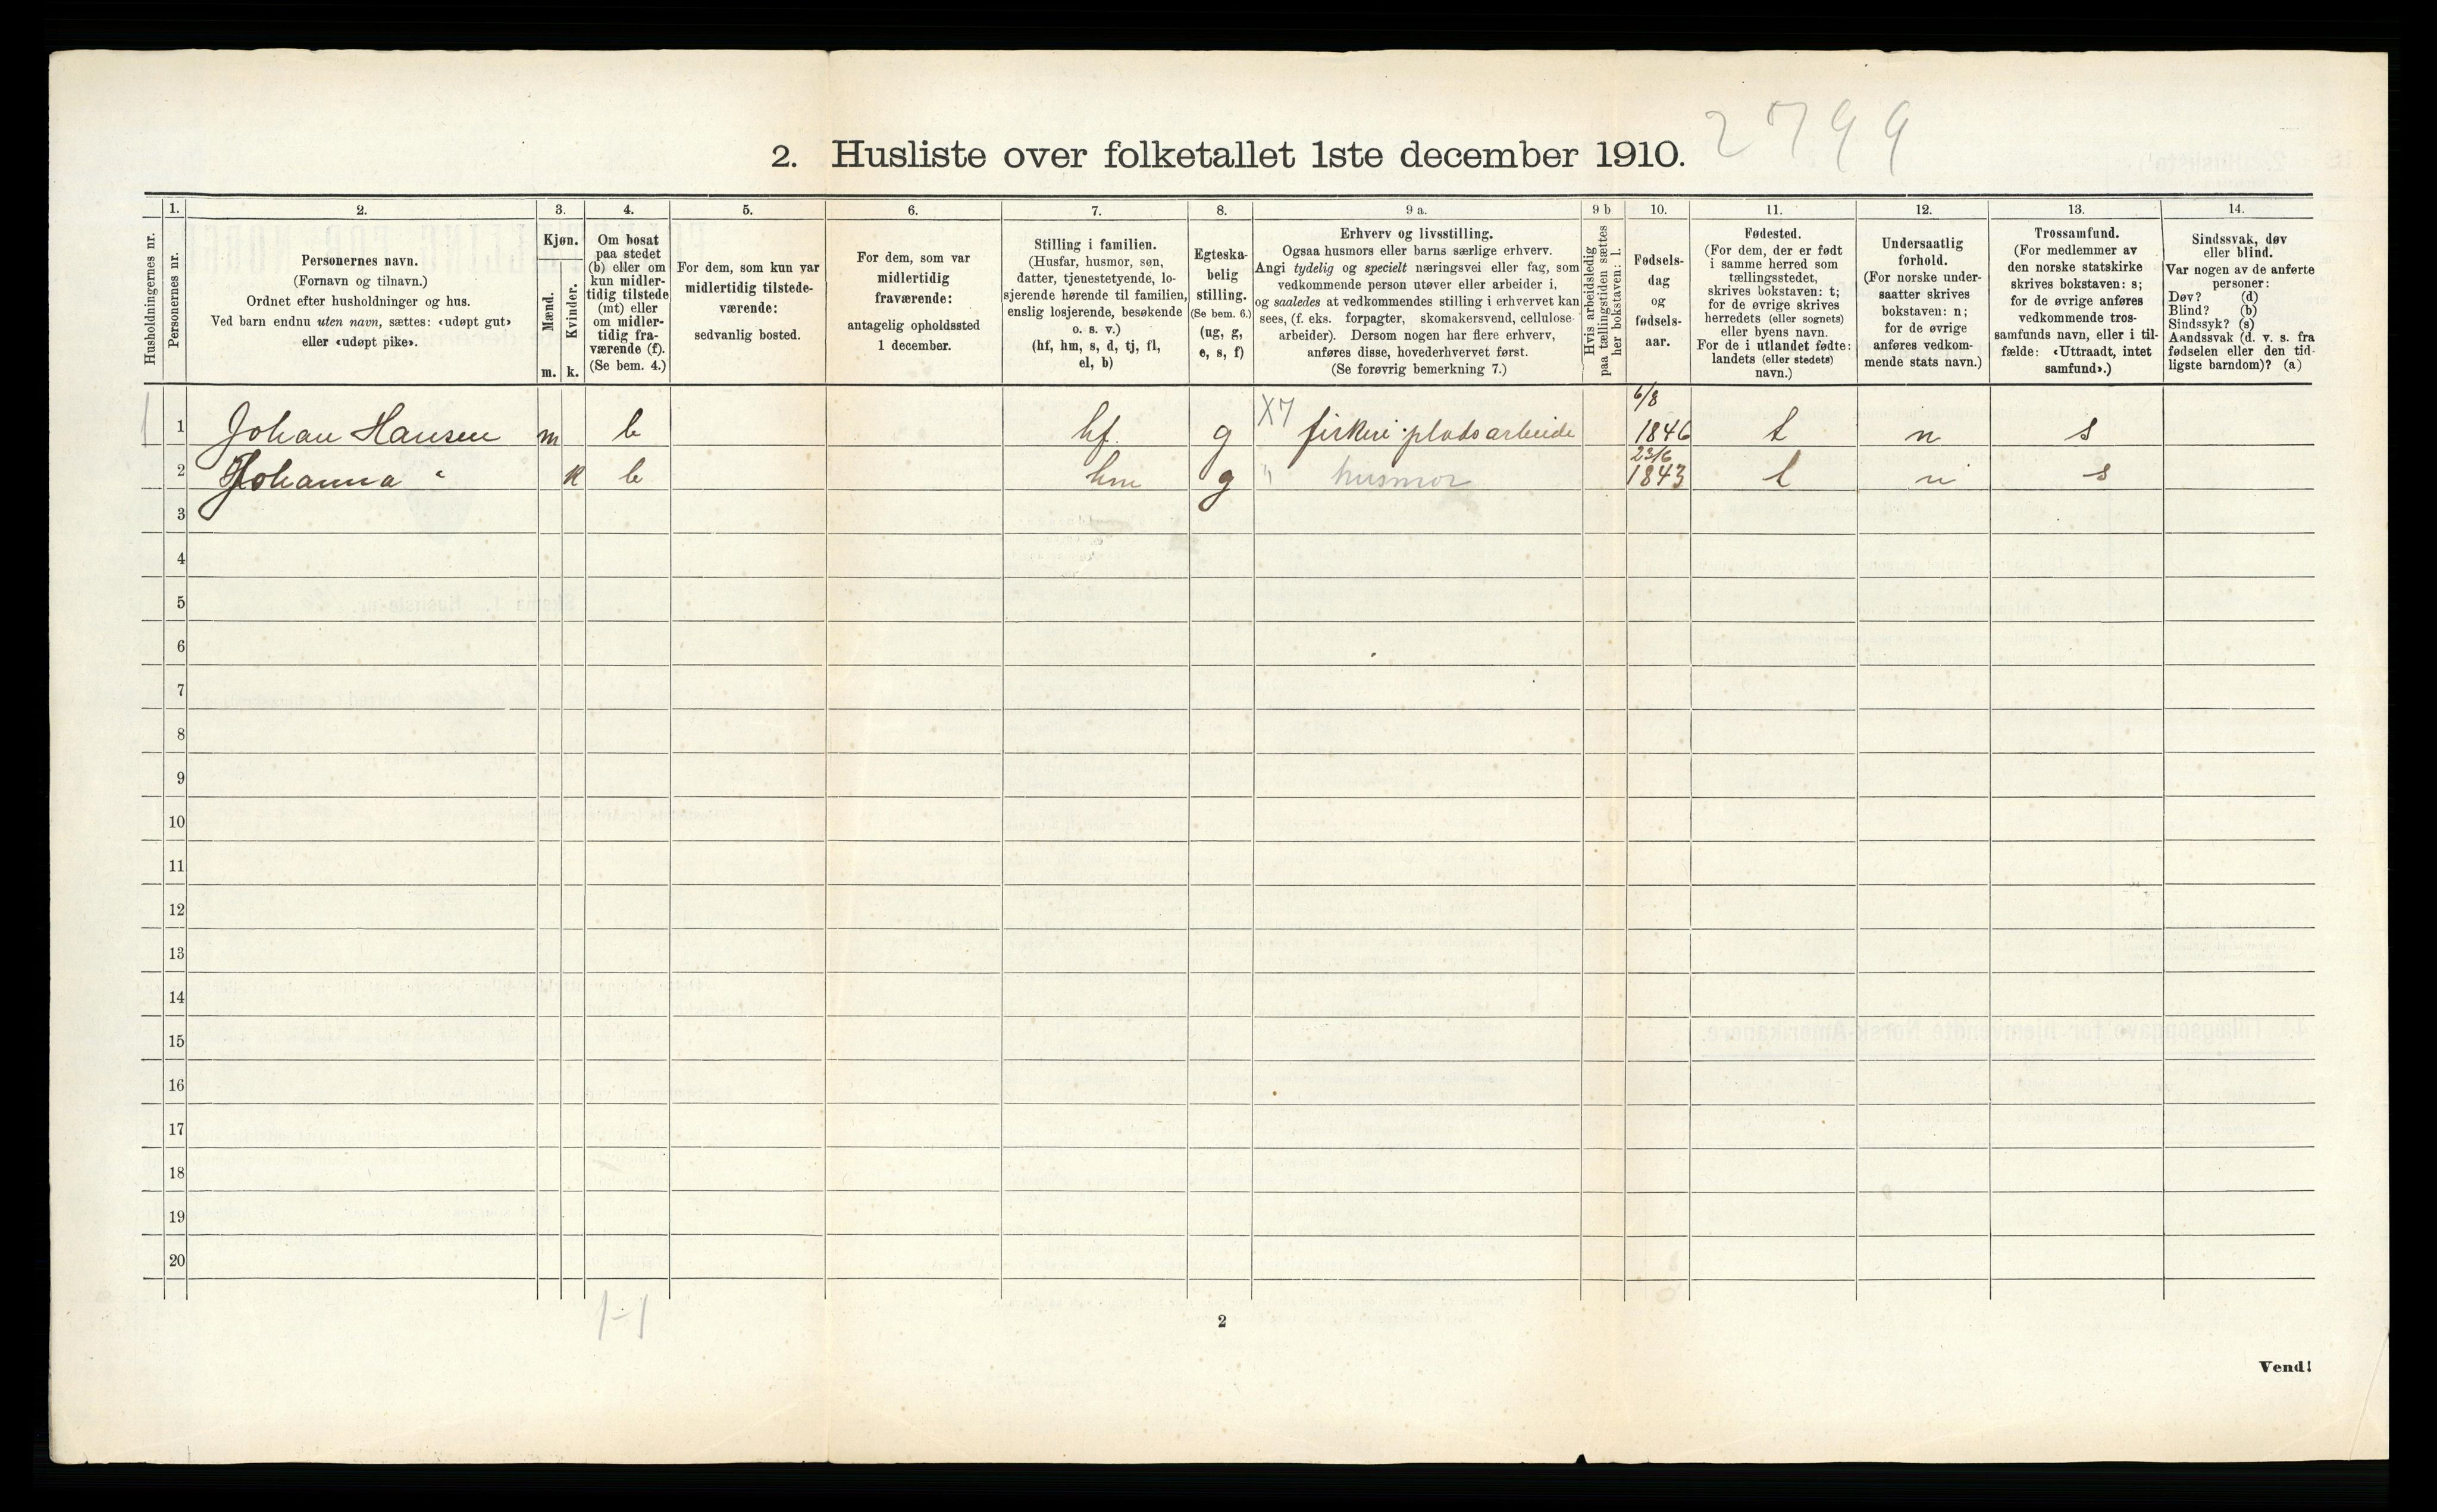 2799
2. Husliste over folketallet 1ste december 1910.
Husholdningernes nr.
1.
Personernes nr.
2.
Personernes navn.
(Fornavn og tilnavn.)
Ordnet efter husholdninger og hus.
Ved barn endnu uten navn, sættes: «udøpt gut»
eller «udøpt pike».
3.
Kjøn.
Mænd.
Kvinder.
m. k.
4.
Om bosat
paa stedet
(b) eller om
kun midler-
tidig tilstede
(mt) eller
om midler-
tidig fra-
værende (f).
(Se bem. 4.)
5.
For dem, som kun var
midlertidig tilstede-
værende:
sedvanlig bosted.
6.
For dem, som var
midlertidig
fraværende:
antagelig opholdssted
1 december.
7.
Stilling i familien.
(Husfar, husmor, søn,
datter, tjenestetyende, lo-
sjerende hørende til familien,
enslig losjerende, besøkende
o. s. v.)
(hf, hm, s, d, tj, fl,
el, b)
8.
Egteska-
belig
stilling.
(Se bem. 6.)
(ug, g,
e, s, f)
9 a.
Erhverv og livsstilling.
Ogsaa husmors eller barns særlige erhverv.
Angi tydelig og specielt næringsvei eller fag, som
vedkommende person utøver eller arbeider i,
og saaledes at vedkommendes stilling i erhvervet kan
sees, (f. eks. forpagter, skomakersvend, cellulose-
arbeider). Dersom nogen har flere erhverv,
anføres disse, hovederhvervet først.
(Se forøvrig bemerkning 7.)
9 b
Hvis arbeidsledig
paa tællingstiden sættes
her bokstaven: l.
10.
Fødsels-
dag
og
fødsels-
aar.
11.
Fødested.
(For dem, der er født
i samme herred som
tællingsstedet,
skrives bokstaven: t;
for de øvrige skrives
herredets (eller sognets)
eller byens navn.
For de i utlandet fødte:
landets (eller stedets)
navn.)
12.
Undersaatlig
forhold.
(For norske under-
saatter skrives
bokstaven: n;
for de øvrige
anføres vedkom-
mende stats navn.)
13.
Trossamfund.
(For medlemmer av
den norske statskirke
skrives bokstaven: s;
for de øvrige anføres
vedkommende tros-
samfunds navn, eller i til-
fælde: «Uttraadt, intet
samfund».)
14.
Sindssvak, døv
eller blind.
Var nogen av de anførte
personer:
Døv? (d)
Blind? (b)
Sindssyk? (s)
Aandssvak (d. v. s. fra
fødselen eller den tid-
ligste barndom)? (a)
6/8
1 1 Johan Hansen m b hf. g X7 firkeri plads arbeide 1846 t n s
23/6
2 Johanna " k b hm g " husmor 1843 t n s
3
4
5
6
7
8
9
10
11
12
13
14
15
16
17
18
19
20
1-1
2
Vend!